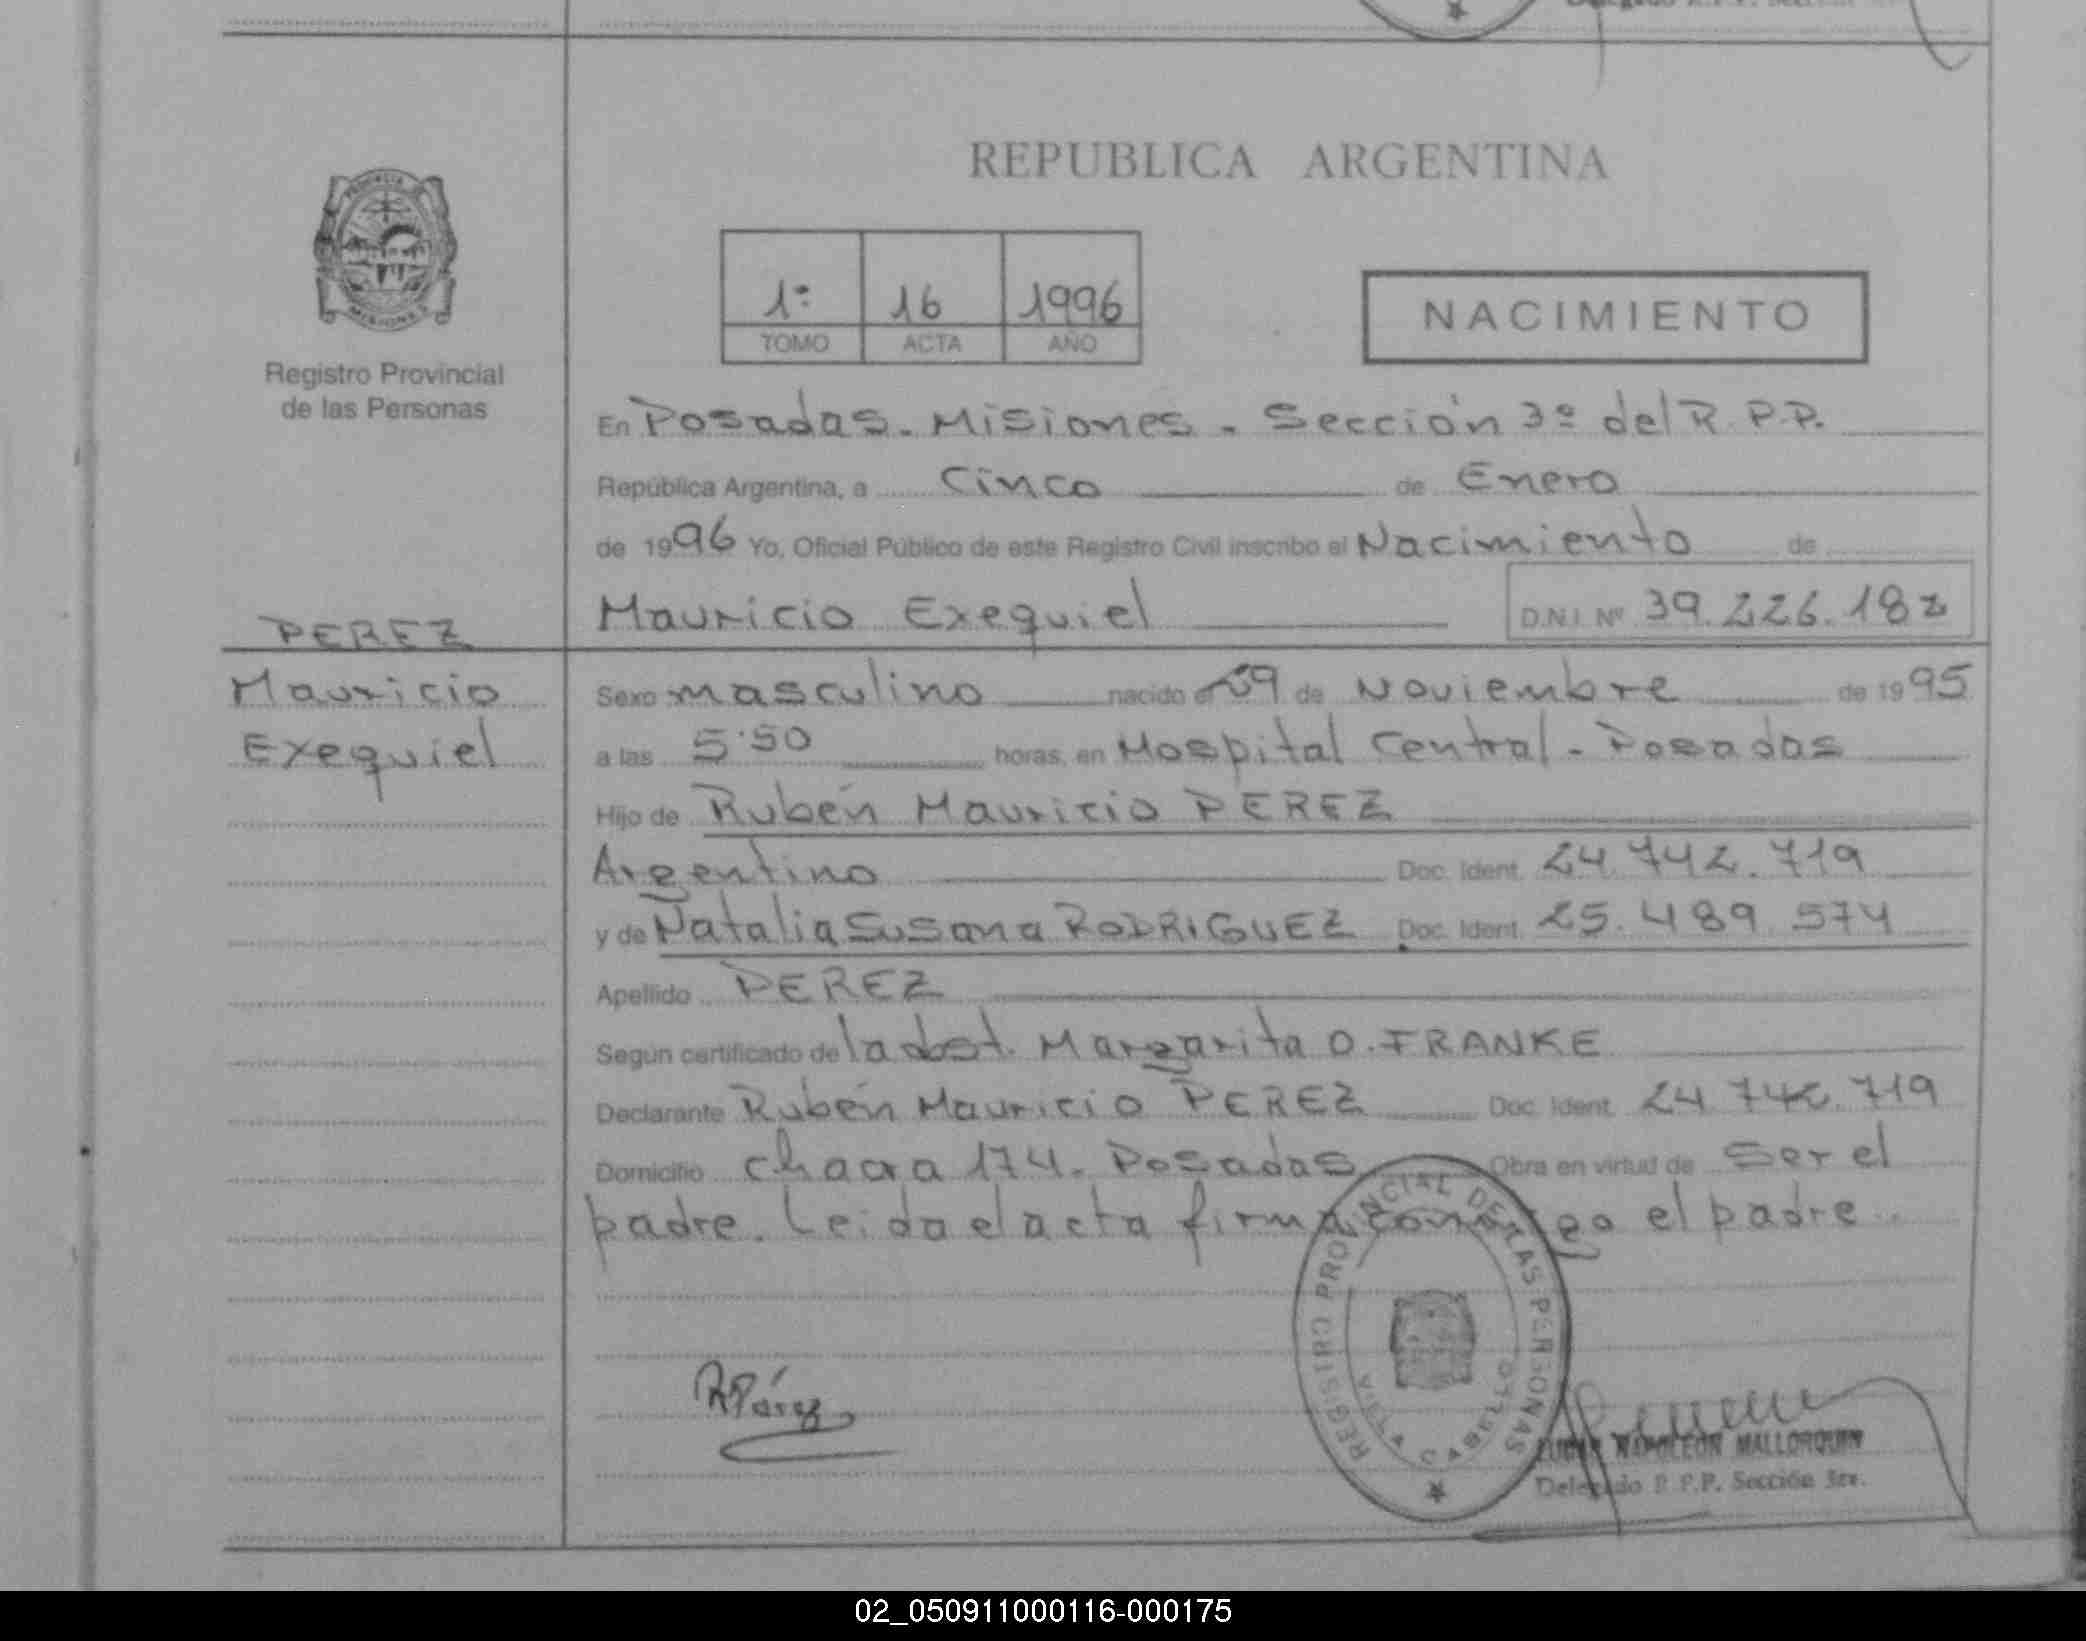 REPUBLICA ARGENTINA
PROVINCIA
MISIONES
Registro Provincial
de las Personas
1º 16 1996
TOMO ACTA AÑO
NACIMIENTO
En Posadas - Misiones - Sección 3º del R.P.P.
República Argentina, a Cinco de Enero
de 1996 Yo, Oficial Público de este Registro Civil inscribo el Nacimiento de
Mauricio Exequiel D.N.I. Nº 39.226.182
PEREZ
Mauricio
Exequiel
Sexo masculino nacido el 29 de Noviembre de 1995
a las 5:50 horas, en Hospital Central - Posadas
Hijo de Rubén Mauricio PEREZ
Argentino Doc. Ident. 24.742.719
y de Natalia Susana RODRIGUEZ Doc. Ident. 25.489.574
Apellido PEREZ
Según certificado de la obst. Margarita O. FRANKE
Declarante Rubén Mauricio PEREZ Doc. Ident. 24.742.719
Domicilio chacra 174. Posadas Obra en virtud de Ser el
padre. Leida el acta firma conmigo el padre.
REGISTRO PROVINCIAL DE LAS PERSONAS
VILLA CABELLO
R Pérez
NAPOLEON MALLORQUIN
Delegado R.P.P. Sección 3ra.
02_050911000116-000175